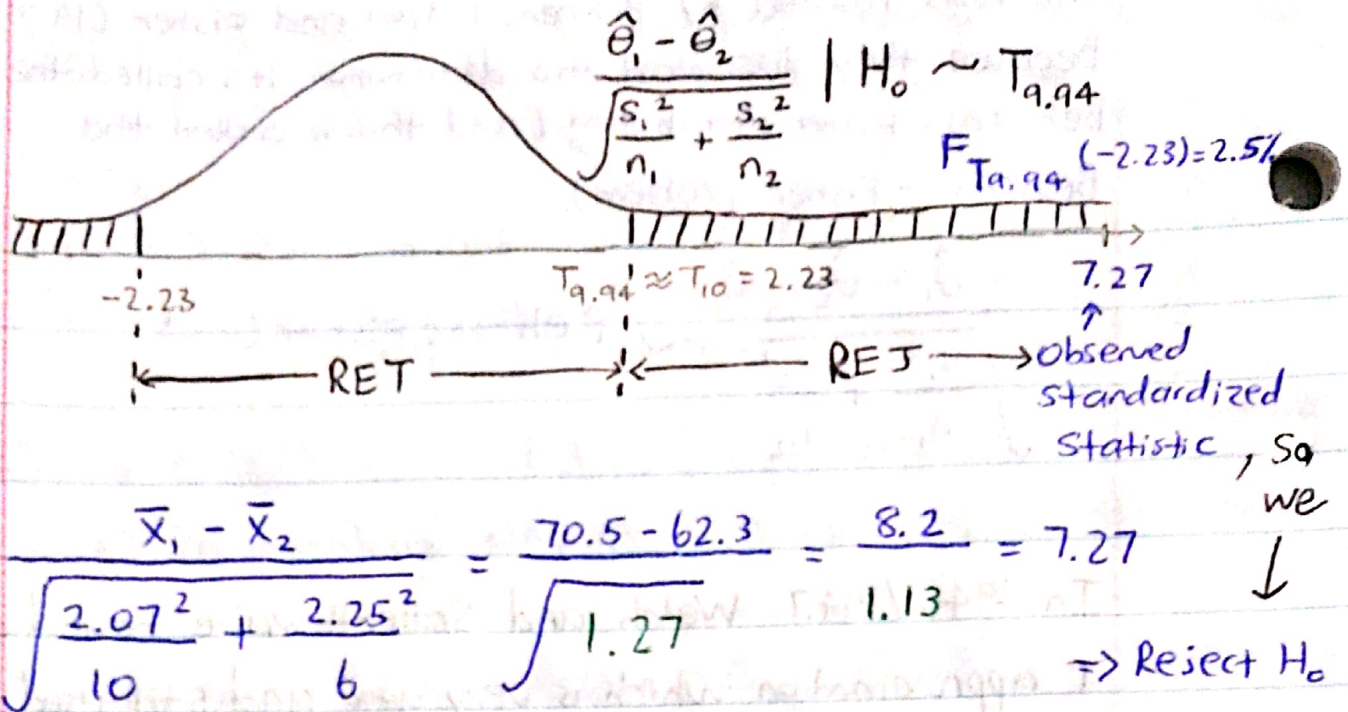 θ̂₁ - θ̂₂ / √(s₁²/n₁ + s₂²/n₂) | H₀ ~ T₉.₉₄
F_T₉.₉₄ (-2.23) = 2.5%
-2.23
T₉.₉₄ ≈ T₁₀ = 2.23
7.27
RET
REJ
observed
standardized
statistic, so
we
X̄₁ - X̄₂ / √(2.07²/10 + 2.25²/6) = 70.5 - 62.3 / √1.27 = 8.2 / 1.13 = 7.27
=> Reject H₀